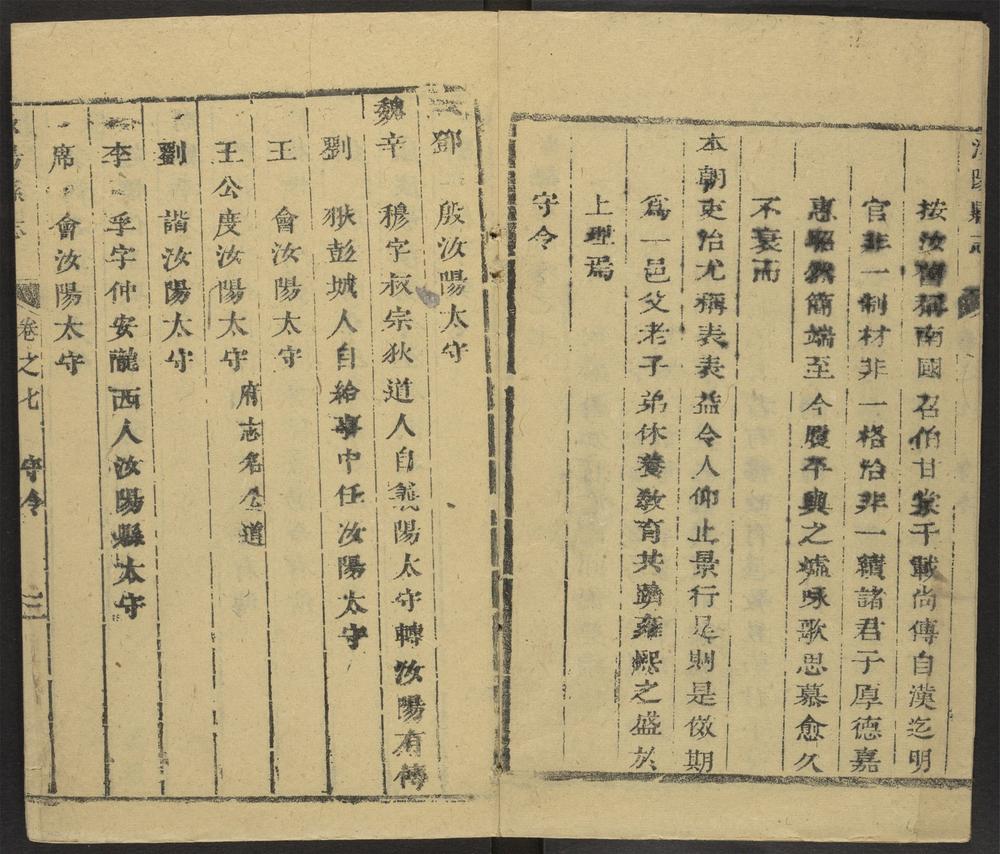 汝陽縣志
按汝舊稱南國召伯甘棠千載尚傳自漢迄明
官非一制材非一格治非一績諸君子厚德嘉
惠昭然簡端至今履平輿之墟咏歌思慕愈久
不衰而
本朝吏治尤稱表表益令人仰止景行是則是傚期
為一邑父老子弟休養敎育共躋雍熈之盛於
上理焉
守令
鄧 殷汝陽太守
魏辛 穆字叔宗狄道人自義陽太守轉汝陽有傳
劉 狄彭城人自給事中任汝陽太守
王 會汝陽太守
王公度汝陽太守 府志名公道
劉 諧汝陽太守
李 孚字仲安隴西人汝陽縣太守
席 會汝陽太守
陽縣志 卷之七 守令 三